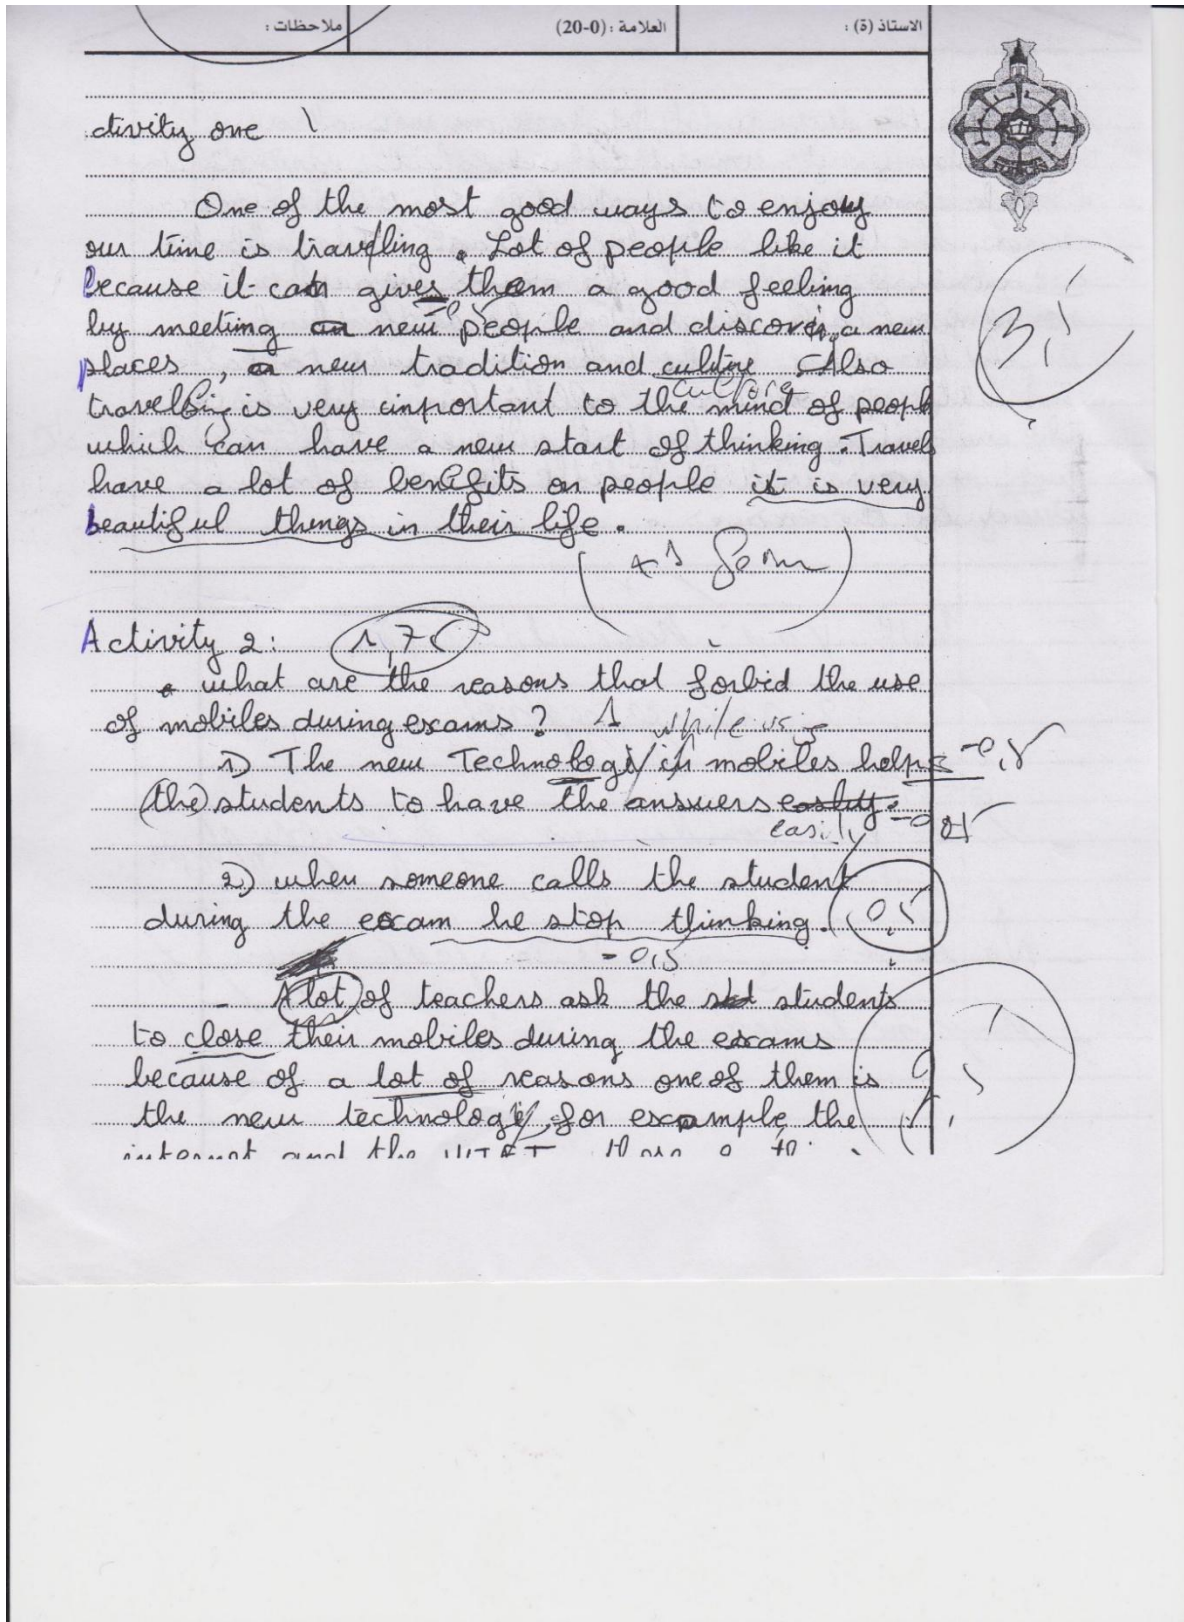 الاستاذ (ة) : العلامة : (0-20) ملاحظات :
ctivity one
One of the most good ways to enjoy
our time is travling . Lot of people like it
3,5
because it can gives them a good feeling
by meeting an new people and discover a new
places , a new tradition and culture . Also
culture
travelling is very important to the mind of people
which can have a new start of thinking . Travels
have a lot of benefits on people it is very
beautiful things in their life .
Activity 2: 1,75
what are the reasons that forbid the use
of mobiles during exams ? 1
while using
1) The new Technologi in mobiles helps -0,5
(the) students to have the answers
easily
2) when someone calls the student
during the exam he stop thinking . 0,5
-0,5
- A lot of teachers ask the students
to close their mobiles during the exams
because of a lot of reasons one of them is
the new technology, for example the
internet and the